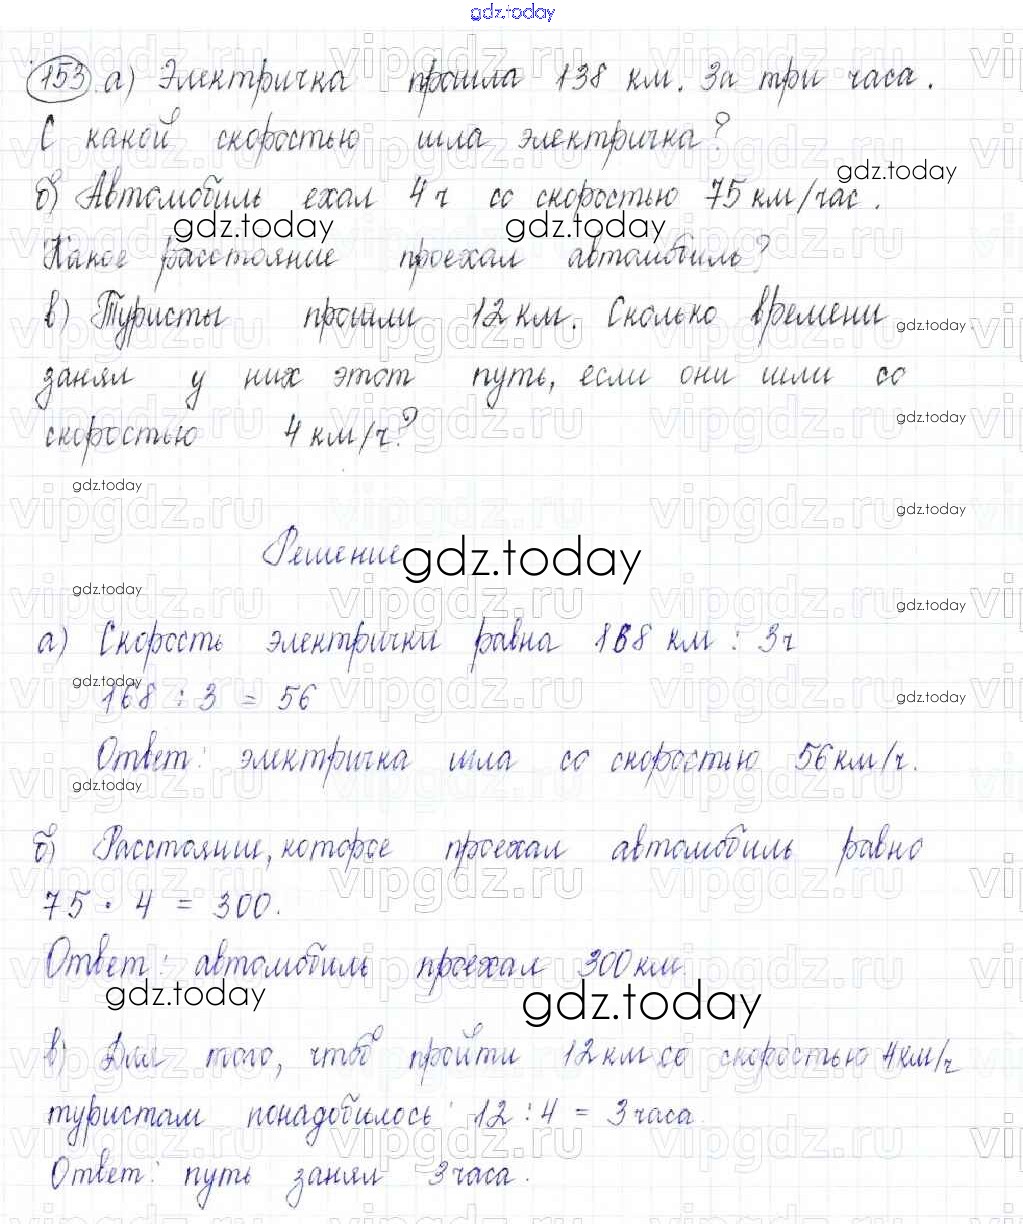 gdz.today
153 а) Электричка прошла 138 км. За три часа.
С какой скоростью шла электричка?
gdz.today
б) Автомобиль ехал 4 ч со скоростью 75 км/час.
gdz.today gdz.today
Какое расстояние проехал автомобиль?
в) Туристы прошли 12 км. Сколько времени
gdz.today
занял у них этот путь, если они шли со
gdz.today
скоростью 4 км/ч?
gdz.today
vipgdz.ru vipgdz.ru vipgdz.ru
gdz.today
Решение
gdz.today
gdz.today
gdz.today
а) Скорость электрички равна 168 км : 3ч
gdz.today
168 : 3 = 56
gdz.today
Ответ: электричка шла со скоростью 56 км/ч.
gdz.today
б) Расстояние, которое проехал автомобиль равно
75 · 4 = 300.
Ответ: автомобиль проехал 300 км.
gdz.today gdz.today
в) Для того, чтоб пройти 12 км со скоростью 4 км/ч
туристам понадобилось 12 : 4 = 3 часа
Ответ: путь занял 3 часа.